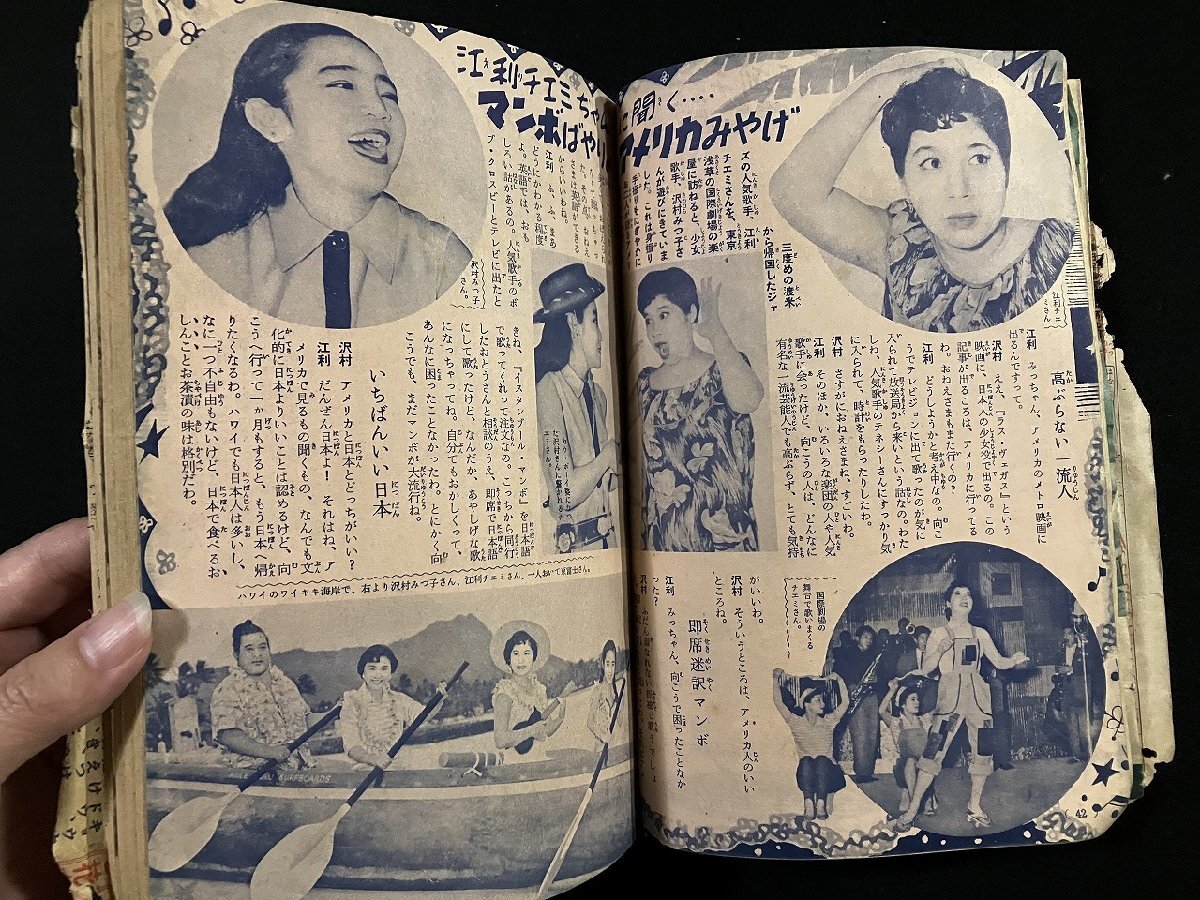 江利チエミちゃん
に聞く‥‥
マンボばやり
アメリカみやげ
三度めの渡米
から帰国したジャ
ズの人気歌手、江利
チエミさんを、東京
浅草の国際劇場の楽
屋に訪ねると、少女
歌手、沢村みつ子さ
んが遊びにきていま
した。これは身振り
江利チエ
ミさん
高ぶらない一流人
江利 みっちゃん、アメリカのメトロ映画に
出るんですって。
沢村 ええ、『ラス・ヴェガス』という
映画に、日本人の少女役で出るの。この
記事が出るころは、アメリカに行ってる
わ。おねえさまもまた行くの？
江利 どうしようかと考え中なの。向こ
うでテレビジョンに出て歌ったのが気に
入られて放送局から来いという話なの。わた
しね、人気歌手のテネシーさんにすっかり気
に入られて、時計をもらったりしたわ。
沢村 さすがにおねえさまね、すごいわ。
江利 そのほか、いろいろな楽団の人や人気
歌手に会ったけど、向こうの人は、どんなに
有名な一流芸能人でも高ぶらず、とても気持
がいいわ。
沢村 そういうところは、アメリカ人のいい
ところね。
即席迷訳マンボ
江利 みっちゃん、向こうで困ったことなか
った？
国際劇場の
舞台で歌いまくる
チエミさん。
(42)
からいいわね。
江利 ふ、ふ、まあ
どうにかわかる程度
よ。英語では、おも
しろい話があるの。人気歌手のボ
ブ・クロスビーとテレビに出たと
沢村みつ子
さん。
きね、『イスタンブール・マンボ』を日本語
で歌ってくれって注文なの。こっちから同行
したおとうさんと相談のうえ、即席で日本語
にして歌ったけど、なんだか、あやしげな歌
になっちゃってね。自分でもおかしくって、
あんなに困ったことなかったわ。とにかく向
こうでも、まだマンボが大流行ね。
いちばんいい日本
沢村 アメリカと日本とどっちがいい？
江利 だんぜん日本よ！ それはね、ア
メリカで見るもの聞くもの、なんでも文
化的に日本よりいいことは認めるけど、向
こうへ行って一か月もすると、もう日本へ帰
りたくなるわ。ハワイでも日本人は多いし、
なに一つ不自由もないけど、日本で食べるお
しんことお茶漬の味は格別だわ。
ハワイのワイキキ海岸で、右より沢村みつ子さん、江利チエミさん、一人おいて豊富士さん。
SURFBOARDS